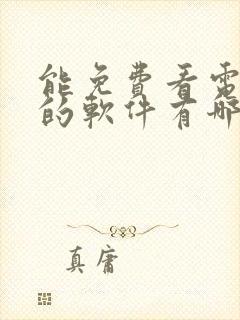 能免費看電
的軟件有哪
真庸